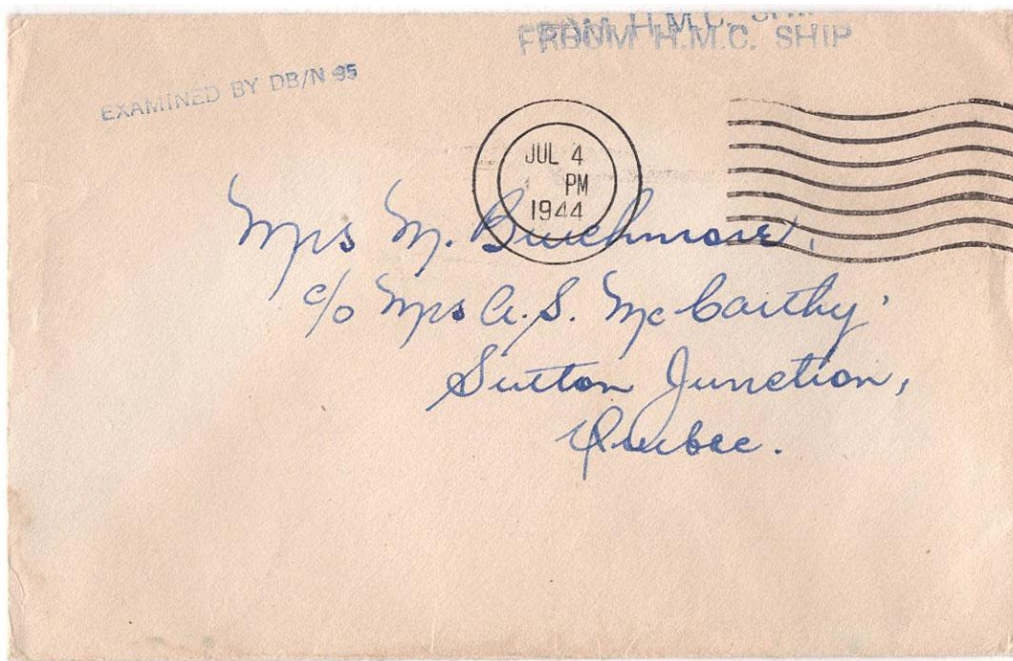 FROM H.M.C. SHIP
FROM H.M.C. SHIP
EXAMINED BY DB/N 95
JUL 4
PM
1944
Mrs M. Burchmore,
c/o Mrs A. S. McCarthy
Sutton Junction,
Quebec.